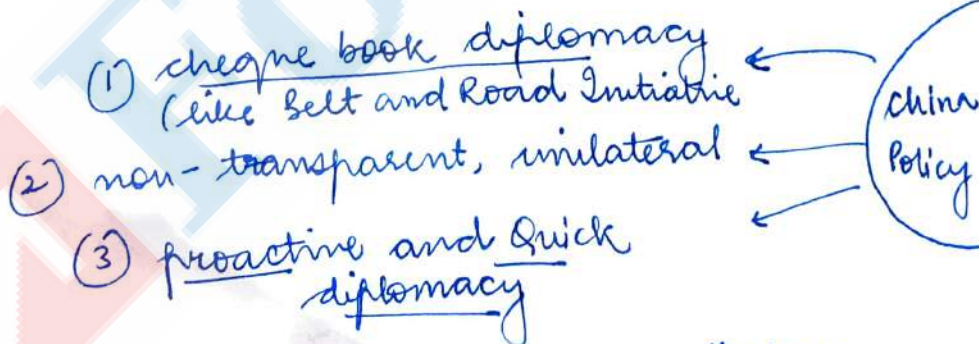 ① cheque book diplomacy
(like Belt and Road Initiative
② non-transparent, unilateral
③ proactive and Quick
diplomacy
China
Policy